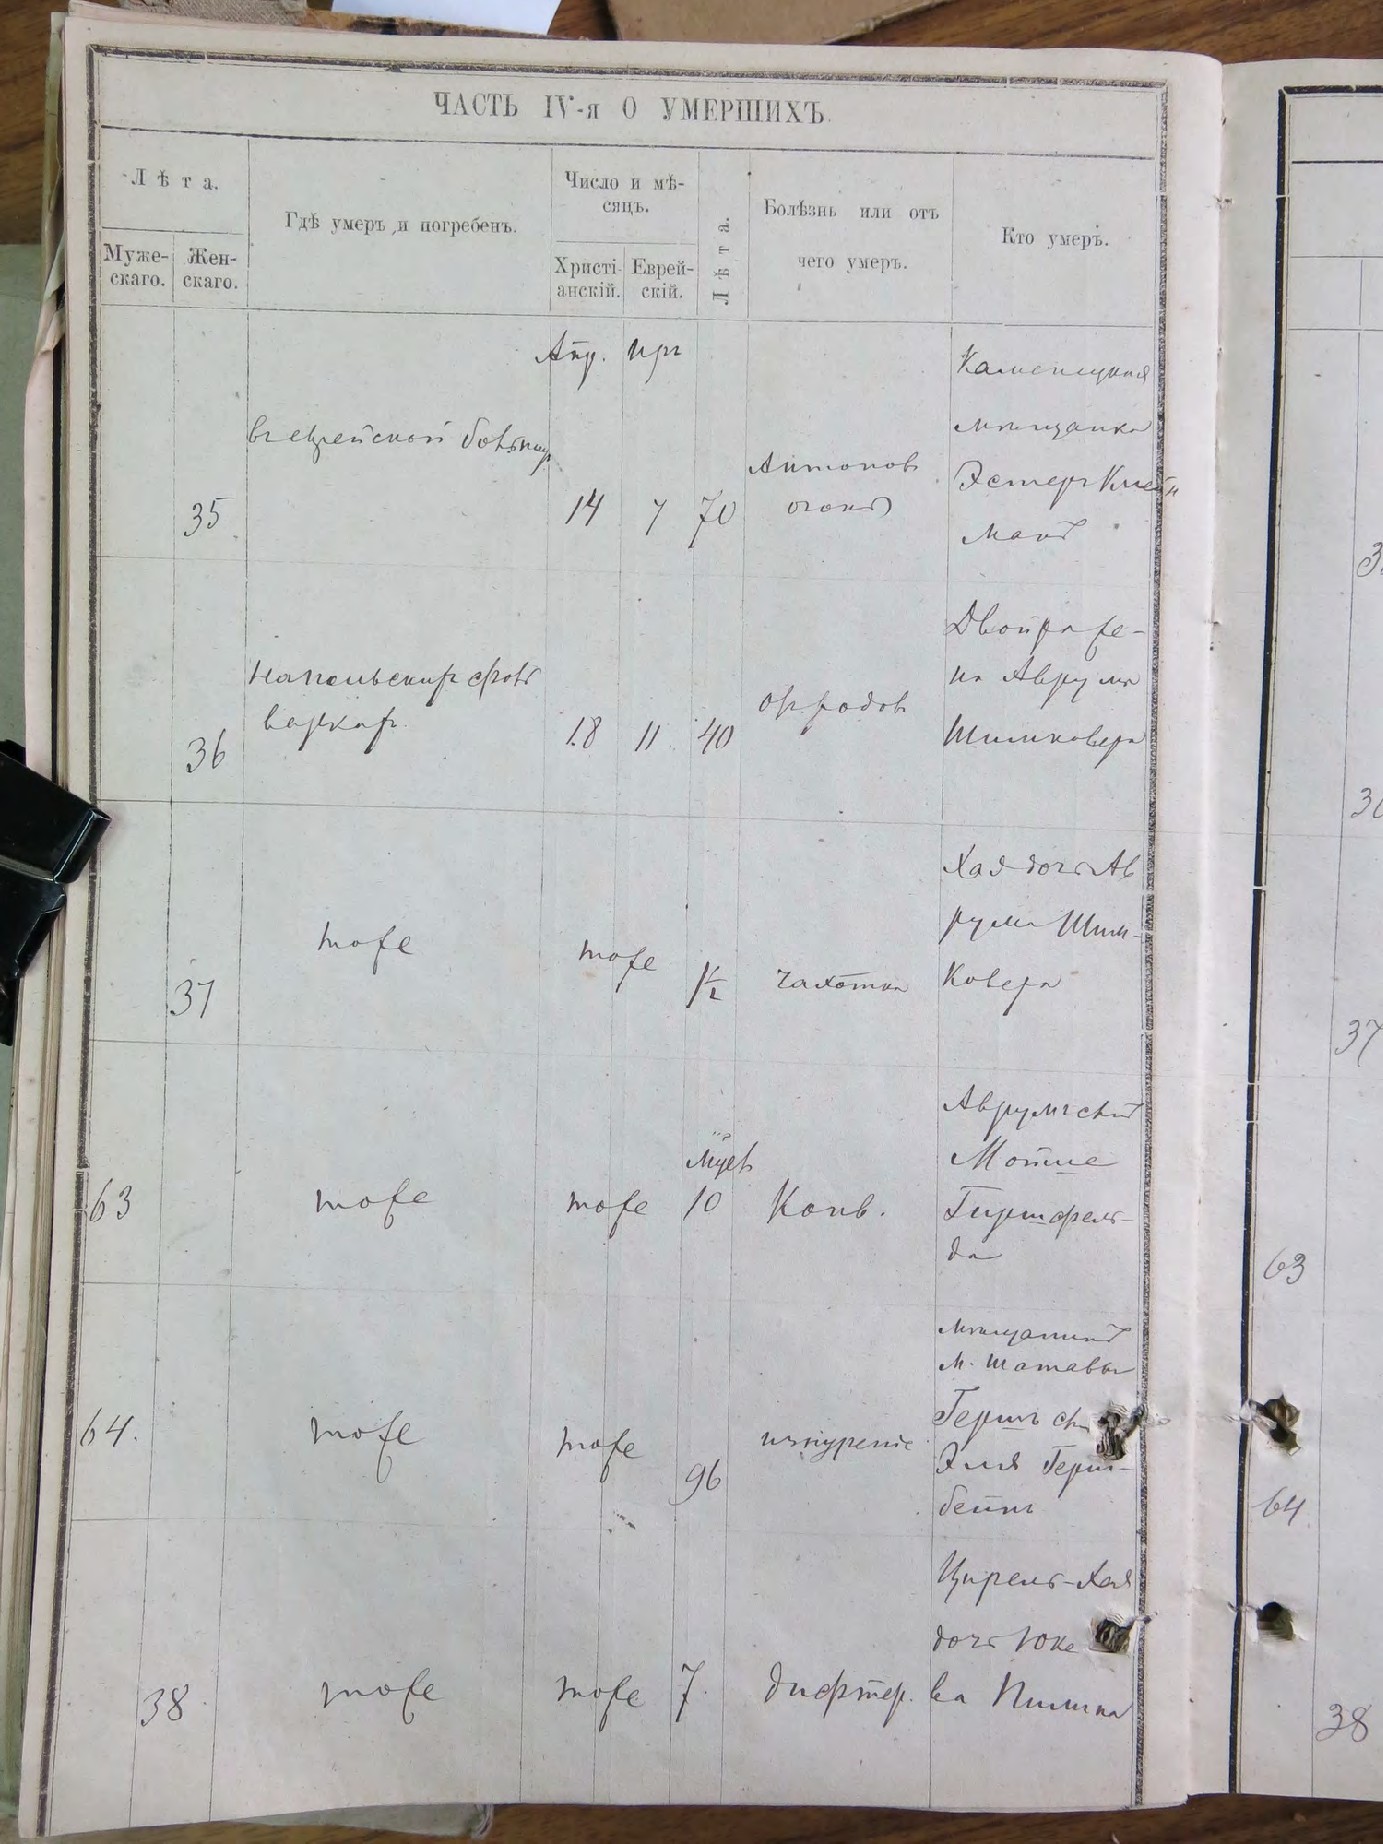 ЧАСТЬ IV-я О УМЕРШИХЪ.
Лѣта.
Муже-
скаго.
Жен-
скаго.
Гдѣ умеръ и погребенъ.
Число и мѣ-
сяцъ.
Христі-
анскій.
Еврей-
скій.
Лѣта.
Болѣзнь или отъ
чего умеръ.
Кто умеръ.
35
въ еврейской больниц
Апр.
14
7
70
Антоновъ
огонь
Каменецкая
мѣщанка
Эстеръ Клейн
манъ
36
18
11
40
отъ родовъ
Двойра же-
на Аврума
Шимковера
37
тоже
тоже
1/2
чахотка
Хая дочь Ав
рума Шим-
ковера
63
тоже
тоже
10
Конв.
Аврумъ сынъ
Мотше
Гиршфель-
да
64.
тоже
тоже
96
изнуреніе
мѣщанинъ
м. Шатавы
Гершъ
Эля Герш-
бейнъ
38
тоже
тоже
7.
дифтер.
Цирель-Хая
дочь
ва
3
63
64
37
38